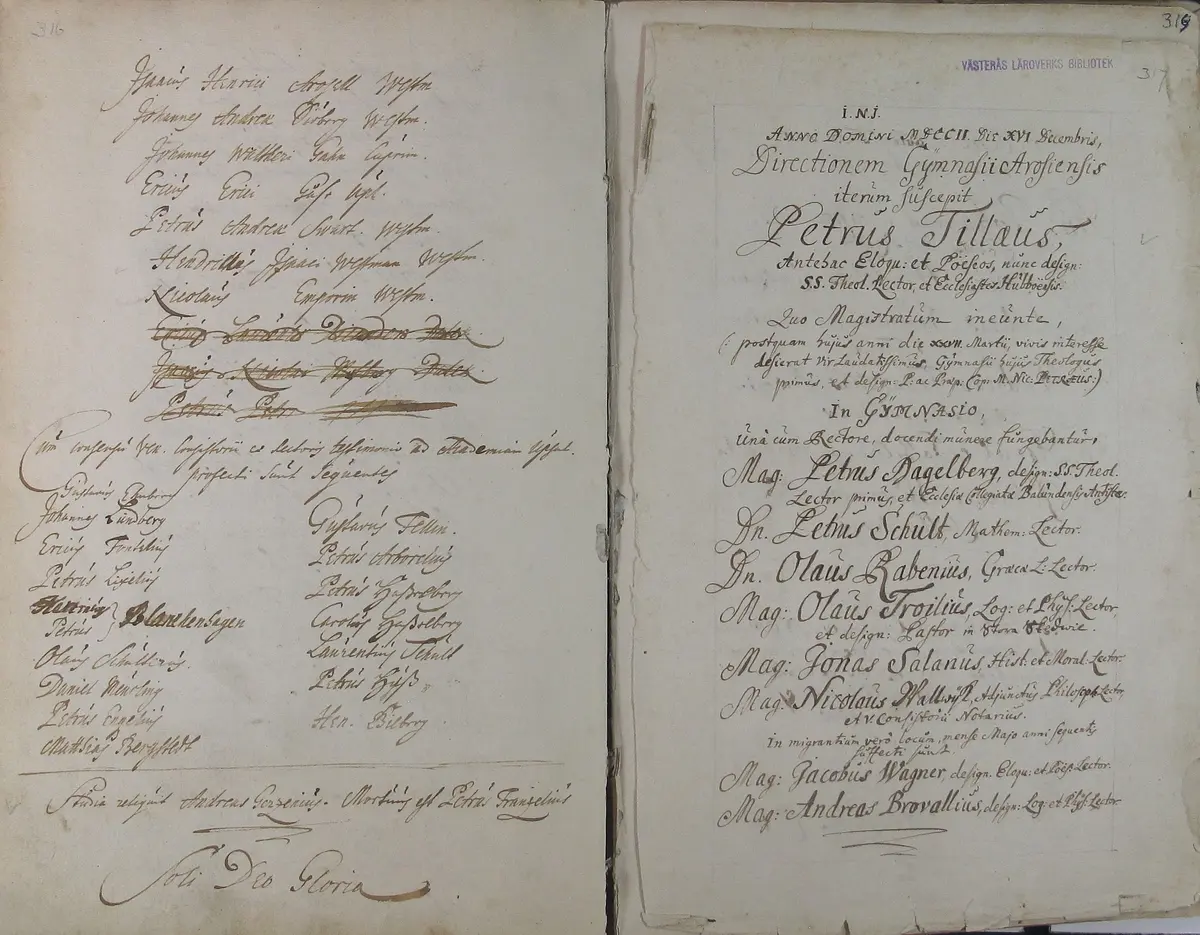 316
Isaacus Henrici Arosell Westm.
Johannes Andreæ Sörberg Westm.
Johannes Waltheri Gahn Cuprim.
Ericus Erici
Petrus Andreæ Swart. Westm.
Hendricus Isaaci Westman Westm.
Nicolaus Emporin Westm.
Petrus Petri
Cum consensu Ven. Consistorii et Rectoris testimonio ad Academiam Upsal.
profecti sunt sequentes
Gustavus
Johannes Lundberg
Ericus
Petrus Lexelius
Petrus } Blanckenhagen
Olaus Schultenus.
Daniel
Petrus Engelius
Matthias Bergstedt
Gustavus Fellen.
Petrus Arborelius
Petrus Hasselberg
Carolus Hasselberg
Laurentius Schult
Petrus Huss
Hen. Biberg
Studia reliquit Andreas Gezzenius. Mortuus est Petrus Franzelius
Soli Deo Gloria
VÄSTERÅS LÄROVERKS BIBLIOTEK
317
I. N. J.
Anno Domini MDCCII. Die XVI Decembris,
Directionem Gymnasii Arosiensis
iterum suscepit
Petrus Tillæus,
Antehac Eloqu: et Pöëseos, nunc design:
SS. Theol. Lector, et Ecclesiastes Hubboënsis.
Quo Magistratum ineunte,
(: postquam hujus anni die XXVII. Martii, vivis interesse
desierat Vir Laudatissimus, Gymnasii hujus Theologus
primus, et design: P: ac Præp: Cop: M: Nic: Petræus:)
In Gymnasio,
unà cum Rectore, docendi munere fungebantur,
Mag: Petrus Hagelberg, design: SS. Theol.
Lector primus, et Ecclesiæ Collegiatæ Balundensis Antistes.
Dn. Petrus Schult, Mathem: Lector.
Dn. Olaus Rabenius, Græcæ L: Lector.
Mag: Olaus Troilius, Log: et Phys: Lector
et design: Pastor in Stora Skedwie.
Mag: Jonas Salanus, Hist. et Moral. Lector.
Mag: Nicolaus Wallwijk, Adjunctus Philosoph: Lector,
A V. Consistorii Notarius.
In migrantium verò locum, mense Majo anni sequentis
suffecti sunt
Mag: Jacobus Wagner, design. Eloqu: et Poës: Lector.
Mag: Andreas Brovallius, design: Log: et Phys: Lector